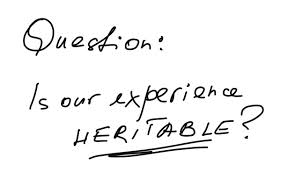 Question:
Is our experience
HERITABLE?